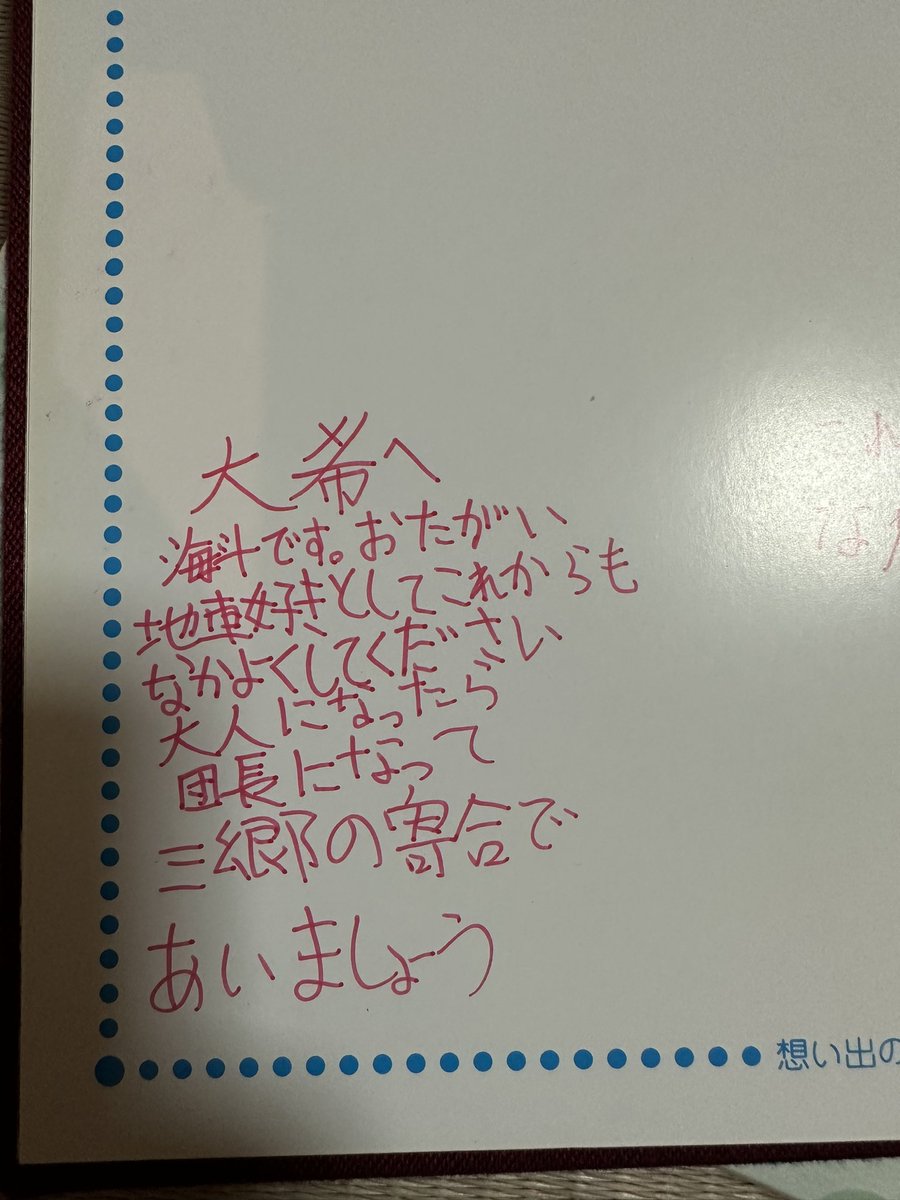 大希へ
海斗です。おたがい
地車好きとしてこれからも
なかよくしてください
大人になったら
団長になって
三郷の寄合で
あいましょう
これ
なか
想い出の